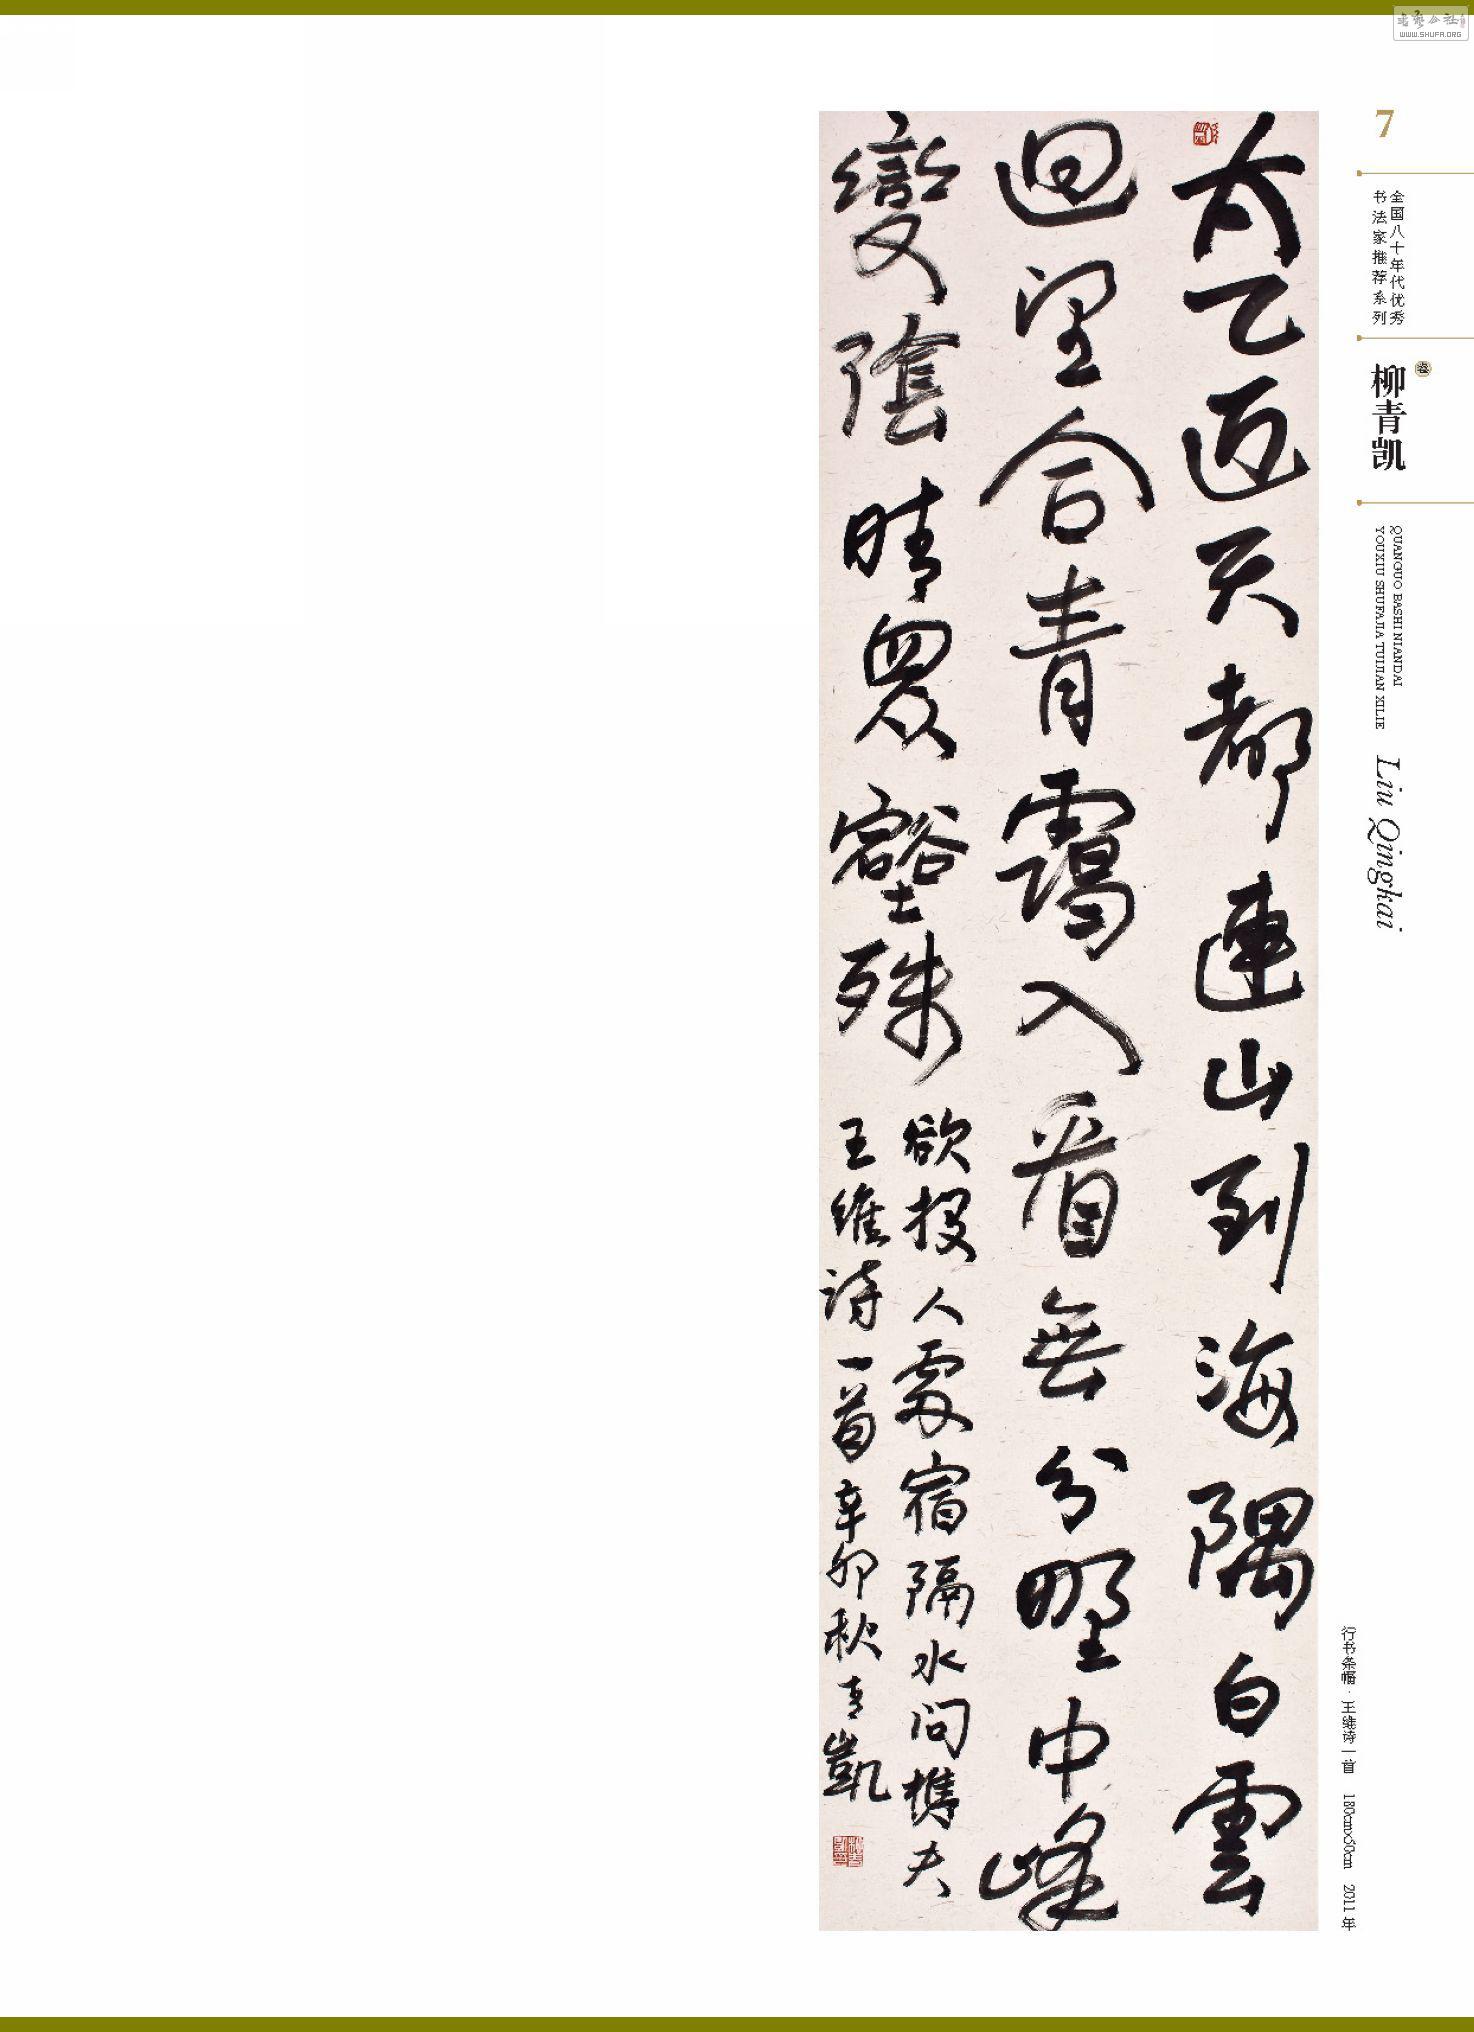 太乙近天都連山到海隅白雲
迴望合青靄入看無分野中峰
變陰晴眾壑殊
欲投人處宿隔水問樵夫
王維诗一首辛卯秋青凱
7
全国八十年代优秀
书法家推荐系列
柳青凯
QUANGUO BASHI NIANDAI
YOUXIU SHUFAJIA TUIJIAN XILIE
Liu Qingkai
行书条幅·王维诗一首 180cm×50cm 2011年
书艺公社
WWW.SHUFA.ORG